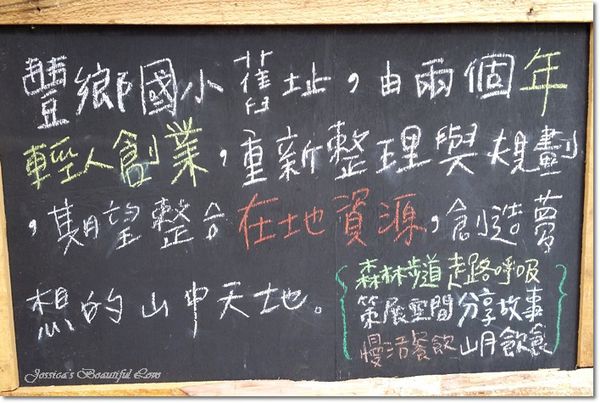 豐鄉國小舊址，由兩個年
輕人創業，重新整理與規劃
，期望整合在地資源，創造夢
想的山中天地。
森林步道 走路呼吸
策展空間 分享故事
慢活餐飲 山月飲食
Jessica's Beautiful Love